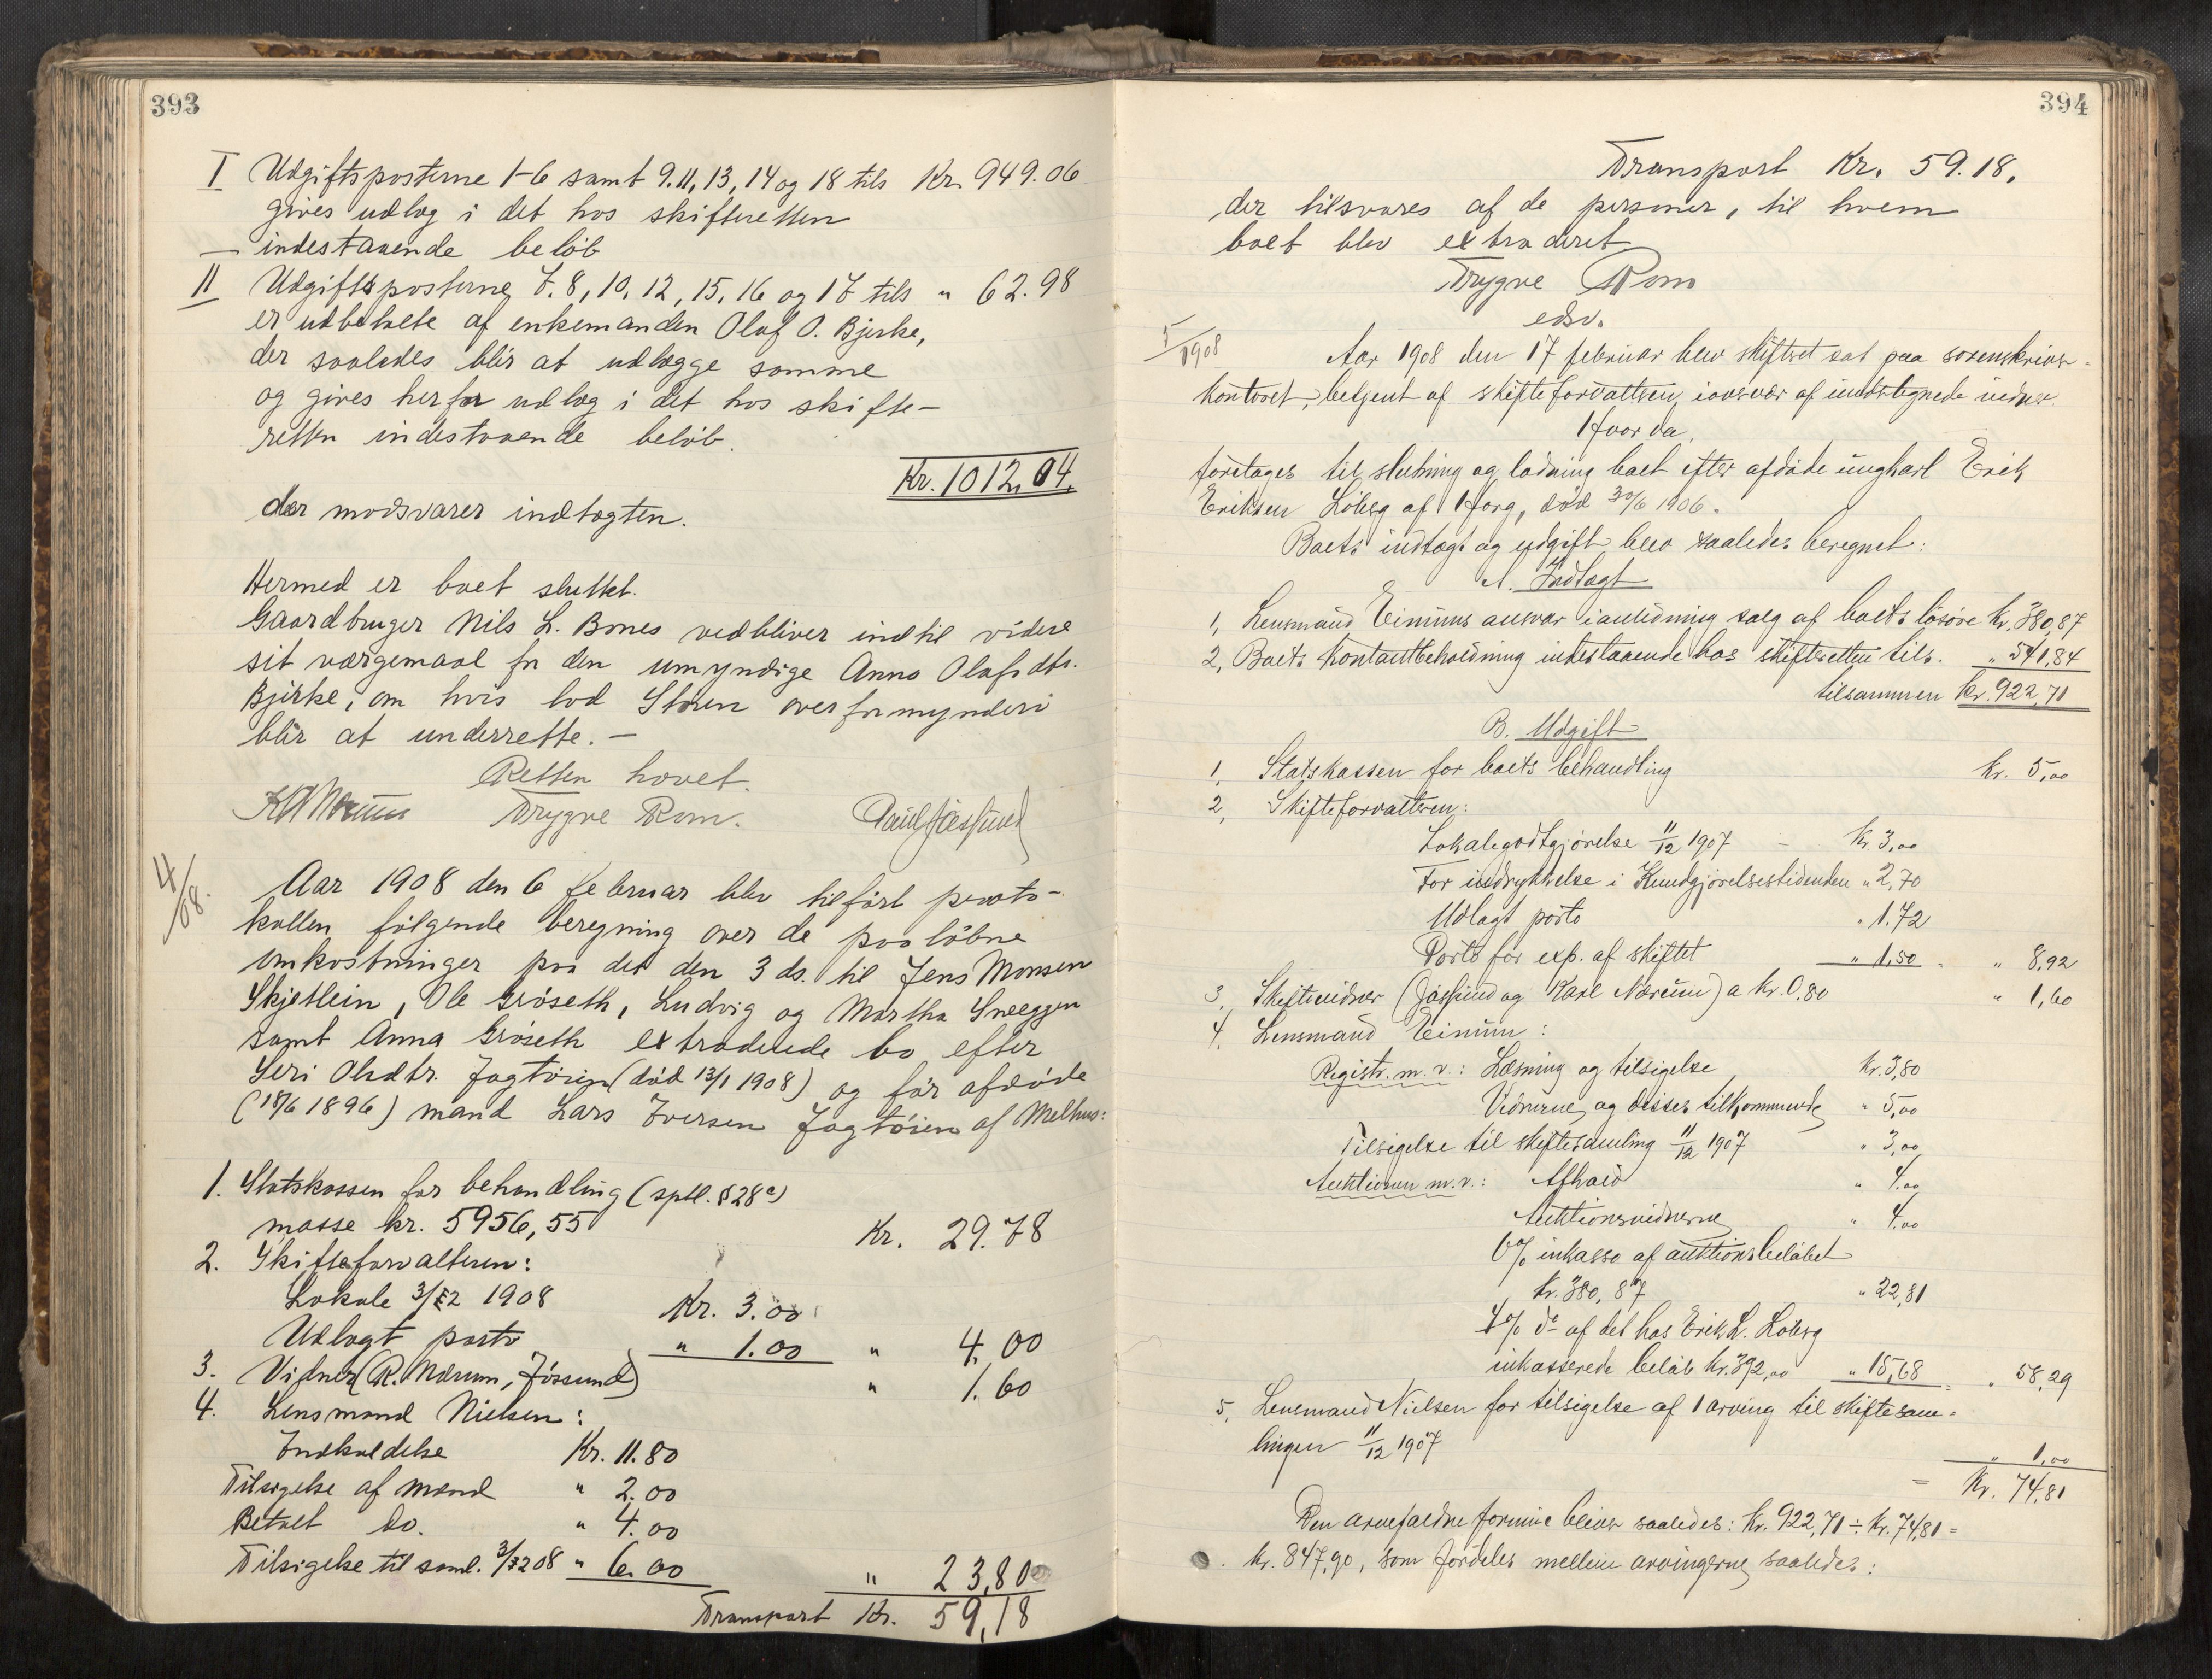 393
I Udgiftsposterne 1-6 samt 9.11, 13, 14 og 18 tils Kr. 949.06
gives udlæg i det hos skifteretten
indestaaende beløb
II Udgiftsposterne 7. 8, 10. 12, 15. 16 og 17 tils " 62.98
er udbetalte af enkemanden Olaf O. Bjerke,
der saaledes blir at udlægge samme
og gives herfor udlæg i det hos skifte-
retten indestaaende beløb.
Kr. 1012.04.
der modsvarer indtægten.
Hermed er boet sluttet.
Gaardbruger Nils L. Bones vedbliver indtil videre
sit værgemaal for den umyndige Anna Olafsdtr.
Bjerke, om hvis lod Støren overformynderi
blir at underrette. -
Retten hævet.
Trygve Rom. Paul Jøssund
4/08.
Aar 1908 den 6 februar blev tilført proto-
kollen følgende beregning over de paaløbne
omkostninger paa det den 3 ds. til Jens Monsen
Skjetlein, Ole Grøseth, Ludvig og Martha Sneeggen
samt Anna Grøseth extraderede bo efter
Seri Olsdtr. Jagtøien (død 13/1 1908) og før afdøde
(18/6 1896) mand Lars Iversen Jagtøien af Melhus:
1. Statskassen for behandling (sptl. § 28 a)
masse kr. 5956,55 Kr. 29.78
2. Skifteforvalteren:
Lokale 3/2 1908 Kr. 3.00
Udlagt porto " 1.00 " 4.00
3. Vidner (R. Nærum, Jøssund) " 1.60
4. Lensmand Nielsen:
Indkaldelse Kr. 11.80
Tilsigelse af mænd " 2.00
Betalt do. " 4.00
Tilsigelse til saml. 3/2 08 " 6.00 " 23,80
Transport Kr. 59,18
394
Transport Kr. 59.18.
der tilsvares af de personer, til hvem
boet blev extraderet
Trygve Rom
edsv.
5/1908
Aar 1908 den 17 februar blev skifteret sat paa sorenskriver-
kontoret, betjent af skifteforvalteren, i overvær af undertegnede vidner.
Hvor da
foretages til slutning og lodning boet efter afdøde ungkarl Erik
Eriksen Løberg af Horg, død 30/6 1906.
Boets indtægt og udgift blev saaledes beregnet:
A. Indtægt
1, Lensmand Einums ansvar i anledning salg af boets løsøre Kr. 380,87
2, Boets kontantbeholdning indestaaende hos skifteretten tils. " 541,84
tilsammen Kr. 922,71
B. Udgift
1, Statskassen for boets behandling Kr. 5,00
2, Skifteforvalteren:
Lokalegodtgjørelse 11/12 1907 - Kr. 3,00
For indrykkelse i Kundgjørelsestidenden " 2,70
Udlagt porto " 1.72
Porto for exp. af skiftet " 1,50 - " 8,92
3, Skiftevidner (Jøssund og Karl Nærum) a kr. 0.80 " 1,60
4, Lensmand Einum:
Registr. m. v.: Læsning og tilsigelse Kr. 3,80
Vidnerne og disses tilkommende " 5,00
Tilsigelse til skiftesamling 11/12 1907 " 3,00
Auktionen m. v.: Afhold " 4.00
Auktionsvidnerne " 4.00
6% inkasso af auktionsbeløbet
kr. 380,87 " 22,81
4% do af det hos Erik L. Løberg
inkasserede beløb kr. 392,00 " 15,68 = " 58,29
5, Lensmand Nielsen for tilsigelse af 1 arving til skiftesam-
lingen 11/12 1907 " 1,00
= Kr. 74,81
Den arvefaldne formue bliver saaledes: Kr. 922,71 ÷ Kr. 74,81 =
kr. 847,90, som fordeles mellem arvingerne saaledes: